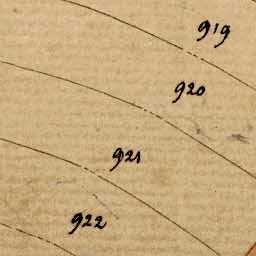 919
920
921
922